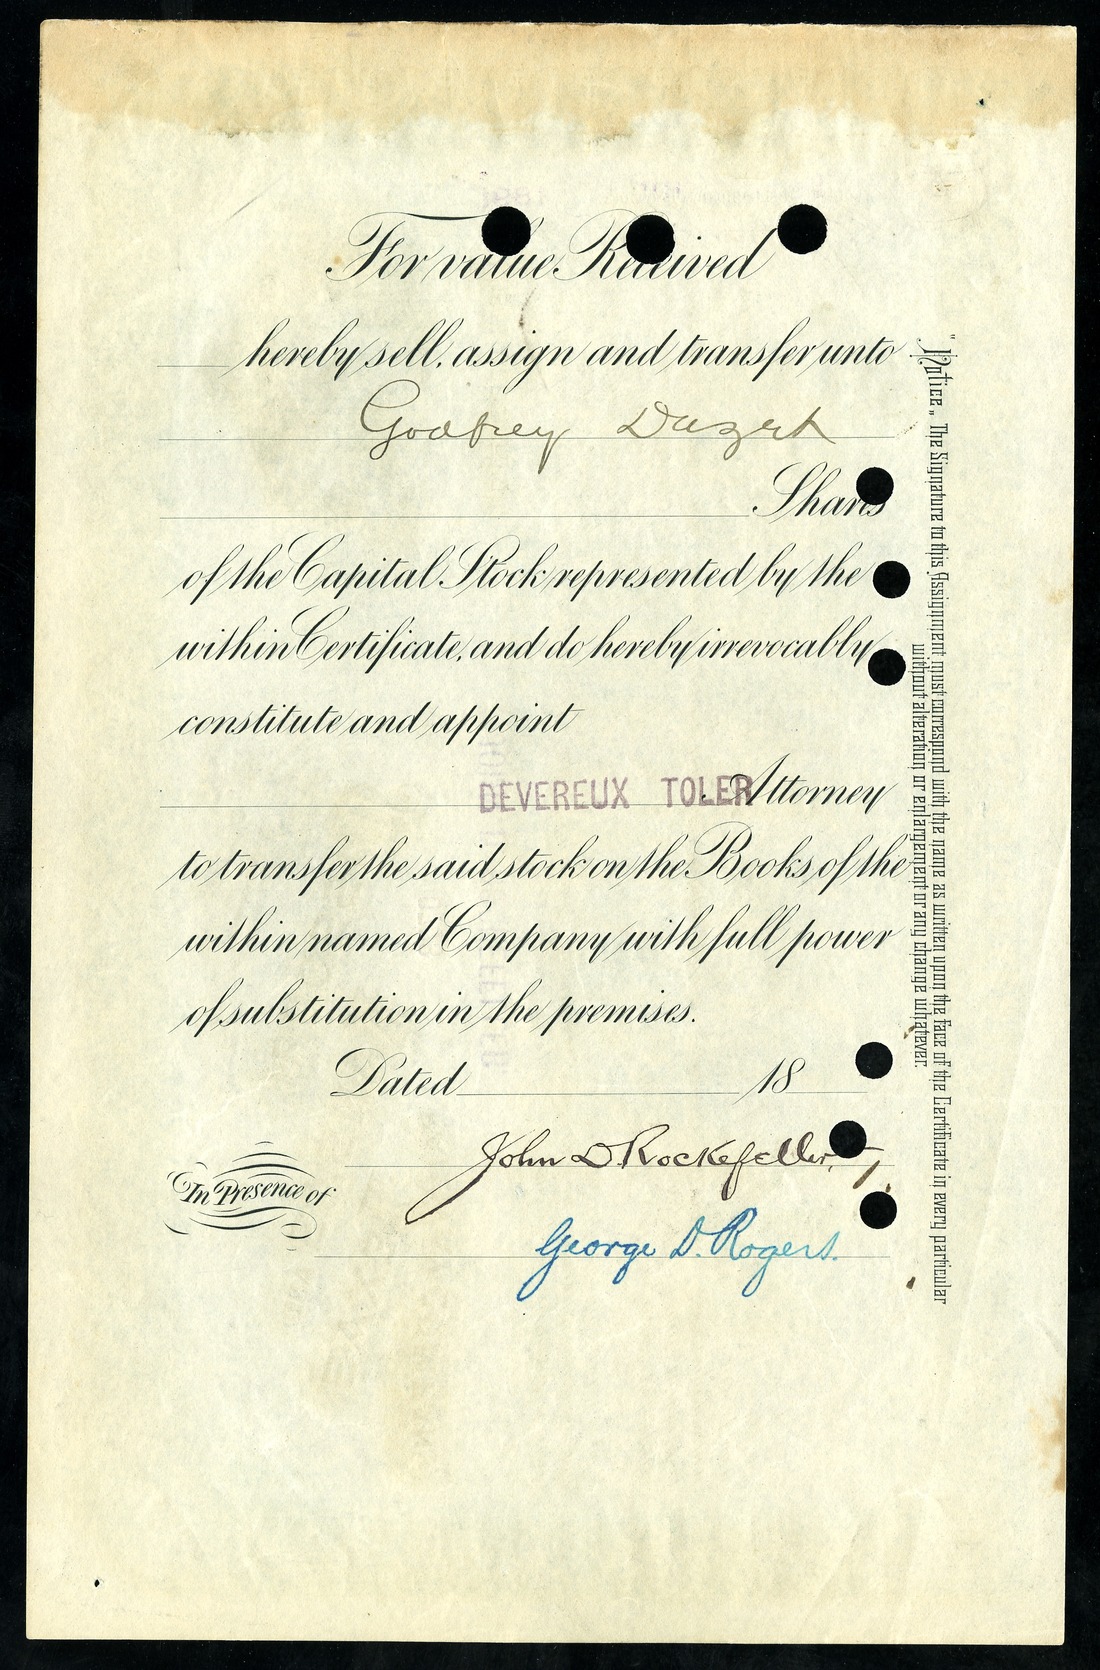 For value Received
hereby sell, assign and transfer unto
Godfrey
Shares
of the Capital Stock represented by the
within Certificate, and do hereby irrevocably
constitute and appoint
DEVEREUX TOLER Attorney
to transfer the said stock on the Books of the
within named Company with full power
of substitution in the premises.
Dated 18
John D. Rockefeller,
In Presence of
George D. Rogers.
"Notice" The Signature to this Assignment must correspond with the name as written upon the face of the Certificate in every particular
without alteration or enlargement or any change whatever.